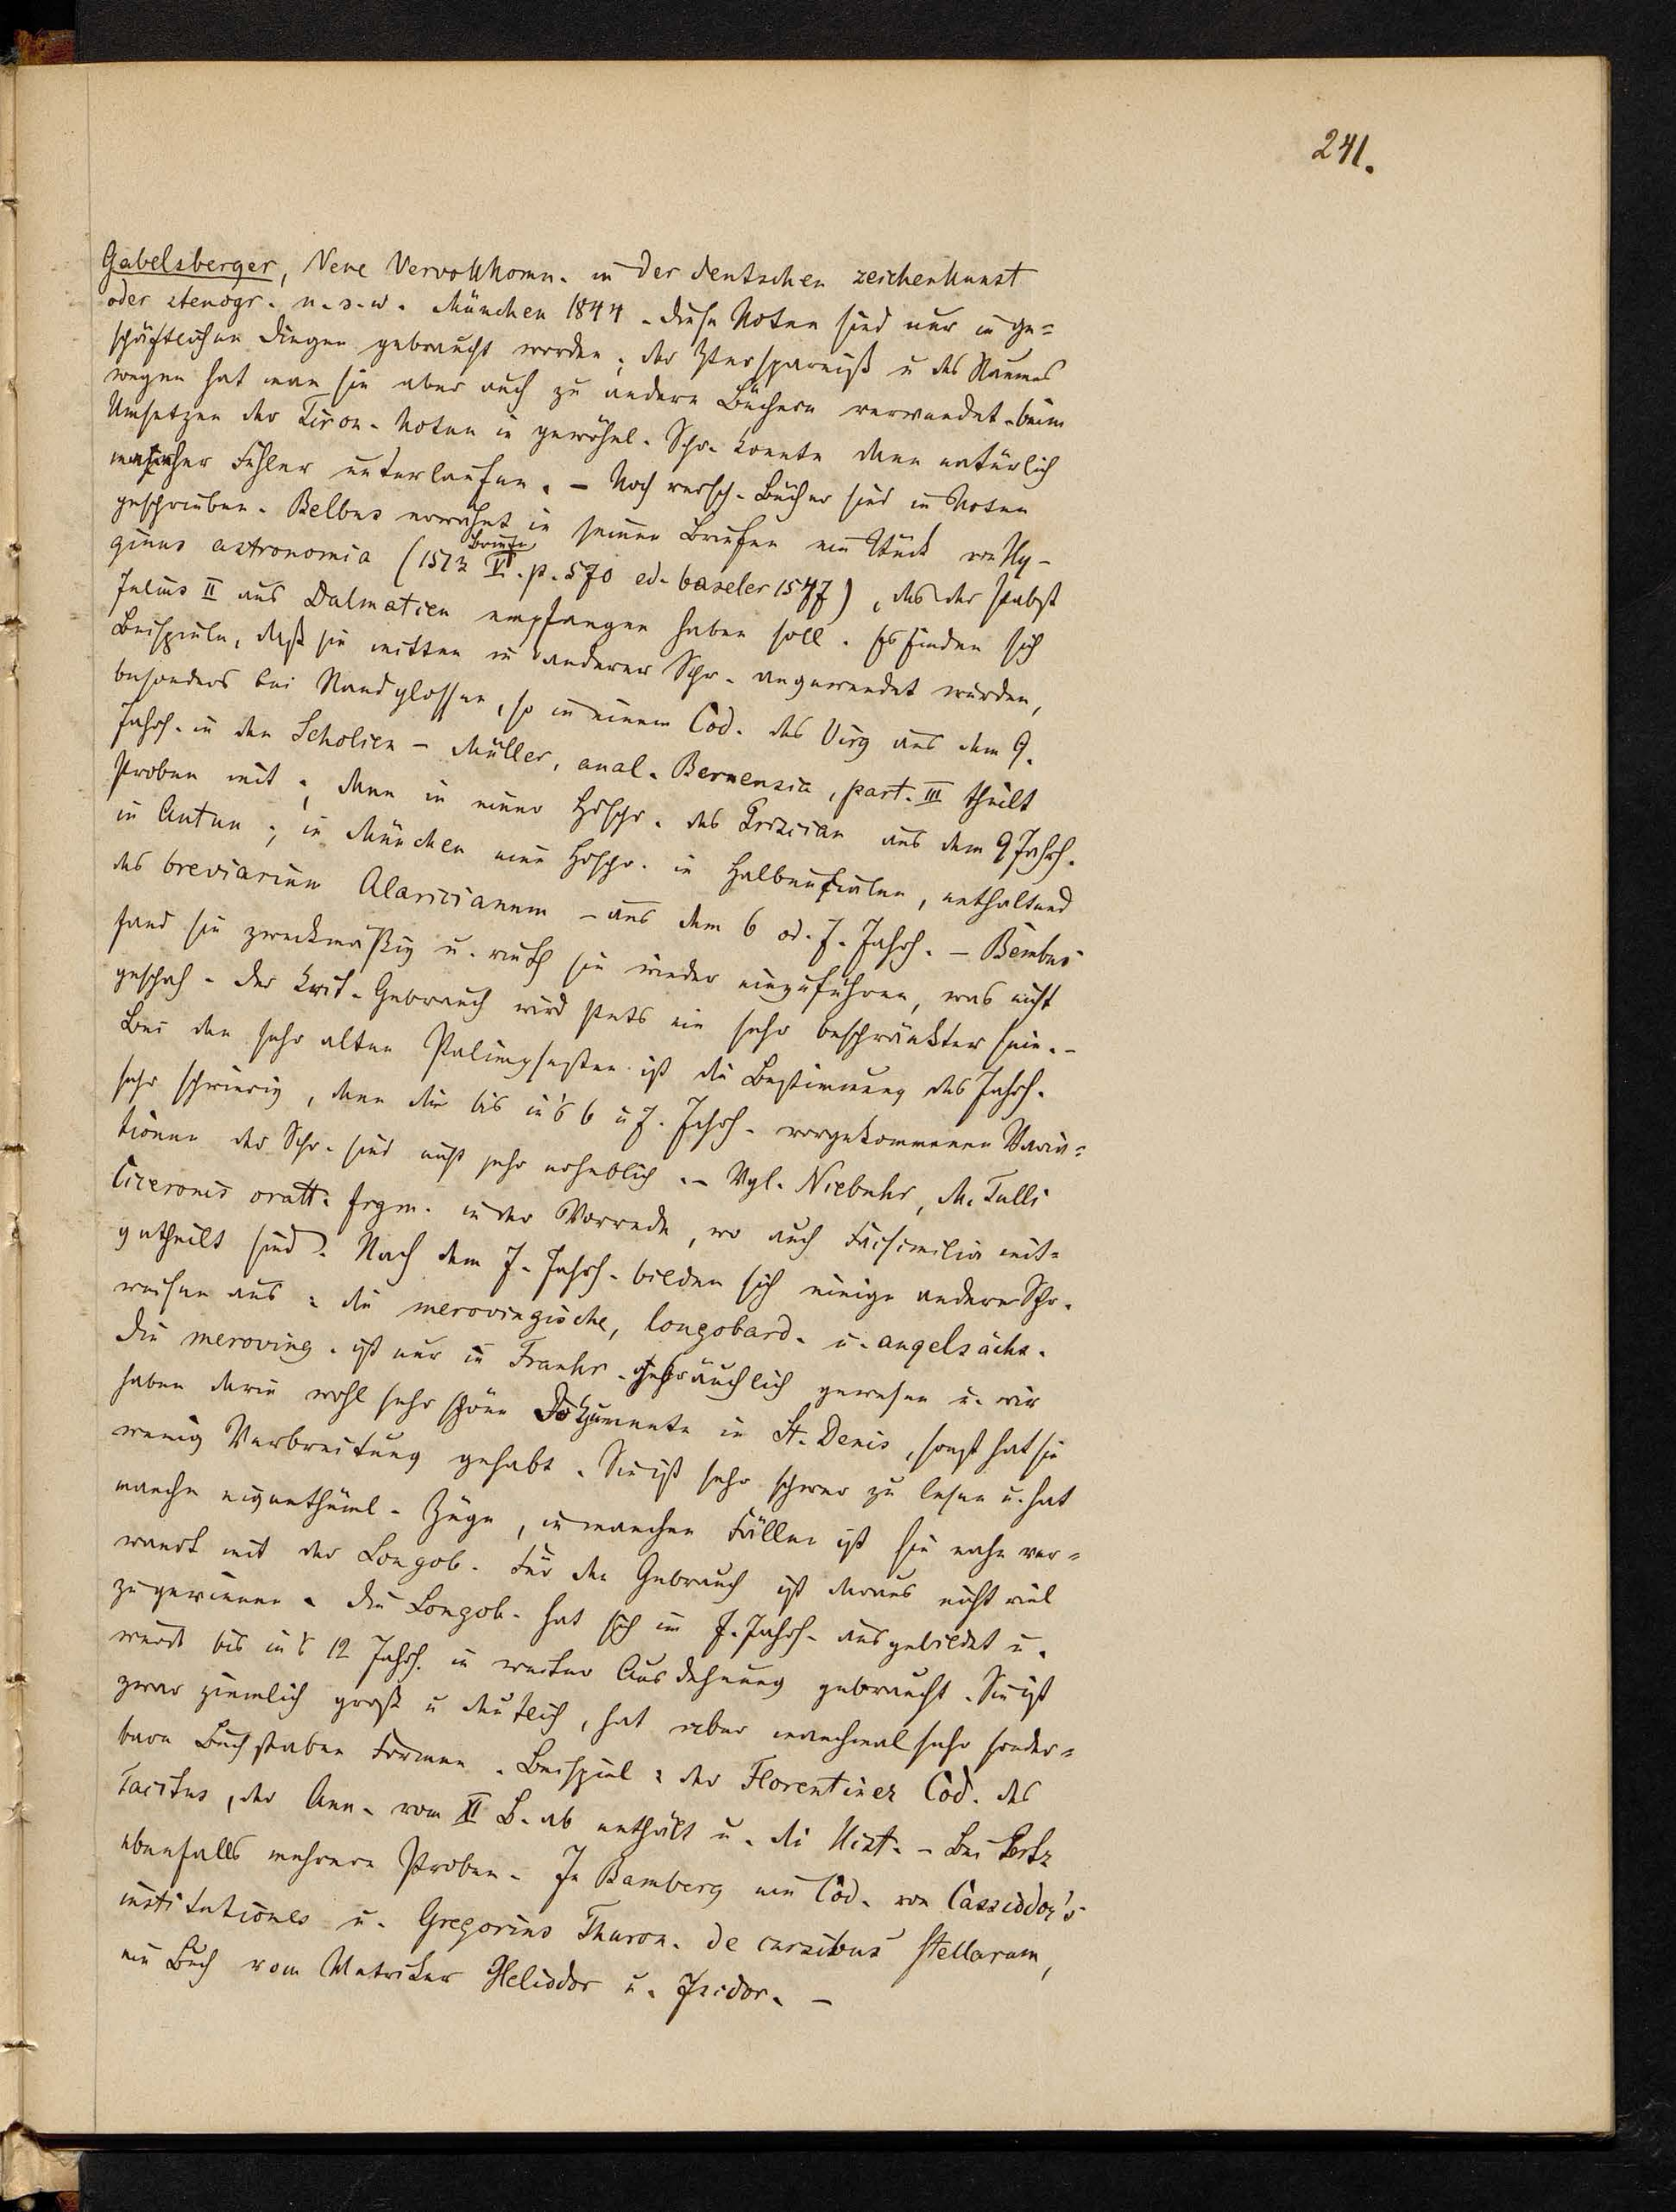 241.
Gabelsberger, Neue Vervollkomn. in der deutschen zeichenkunst
oder stenogr. u. s. w. München 1844. diese Noten sind nur in ge=
schäftlichen Dingen gebraucht worden; der Ersparniß u des Raumes
wegen hat man sie aber auch zu andern Büchern verwendet. beim
Umsetzen der Tiron. Noten in gewöhnl. Schr. konnte dann natürlich
mancher Fehler unterlaufen. – Noch versch. Bücher sind in Noten
geschrieben. Belbus erwähnt in seinen Briefen ein Stück von Hy-
ginus astronomia (1513 Briefe V. p. 570 ed. baseler 1547), das der Pabst
Julius II aus Dalmatien empfangen haben soll. Es finden sich
Beispiele, daß sie mitten in anderer Schr. angewendet wurden,
besonders bei Randglossen, so in einem Cod. des Virg aus dem 9.
Jahrh. in den Scholien – Müller, anal. Bernensia, part. III theilt
Proben mit; dann in einer Hdschr. des Priscian aus dem 9 Jahrh.
in Autun; in München eine Hdschr. in Halbuncialen, enthaltend
das breviarium Alaricianum – aus dem 6 od. 7. Jahrh. – Bembus
fand sie zweckmäßig u. rieth sie wieder einzuführen, was nicht
geschah. Der krit. Gebrauch wird stets ein sehr beschränkter sein. –
Bei den sehr alten Palimpsesten ist die Bestimmung des Jahrh.
sehr schwierig, denn die bis in's 6 u 7. Jahrh. vorgekommenen Varia=
tionen der Schr. sind nicht sehr erheblich. – Vgl. Niebuhr, M. Tulli
Ciceronis oratt. frgm. in der Vorrede, wo auch Facsimilia mit=
getheilt sind. Nach dem 7. Jahrh. bilden sich einige andere Schr.
weisen aus: die merovingische, longobard. u. angelsächs.
Die meroving. ist nur in Frankr. gebräuchlich gewesen u. wir
haben darin wohl sehr schöne Dokumente in St. Denis, sonst hat sie
wenig Verbreitung gehabt. Sie ist sehr schwer zu lesen u. hat
manche eigenthüml. Züge, in manchen Fällen ist sie nahe ver=
wandt mit der Longob. Für den Gebrauch ist daraus nicht viel
zu gewinnen. Die Longob. hat sich im 7. Jahrh. ausgebildet u.
ward bis in's 12 Jahrh. in weiter Ausdehnung gebraucht. Sie ist
zwar ziemlich groß u deutlich, hat aber manchmal sehr sonder=
bare Buchstaben Formen. Beispiel: der Florentiner Cod. des
Tacitus, der Ann. vom XI B. ab enthält u. die Hist. – Bei Pertz
ebenfalls mehrere Proben. In Bamberg ein Cod. von Cassiodor's
institutiones u. Gregorius Thuron. de cursibus stellarum,
ein Buch vom Metriker Heliodor u. Isidor. –